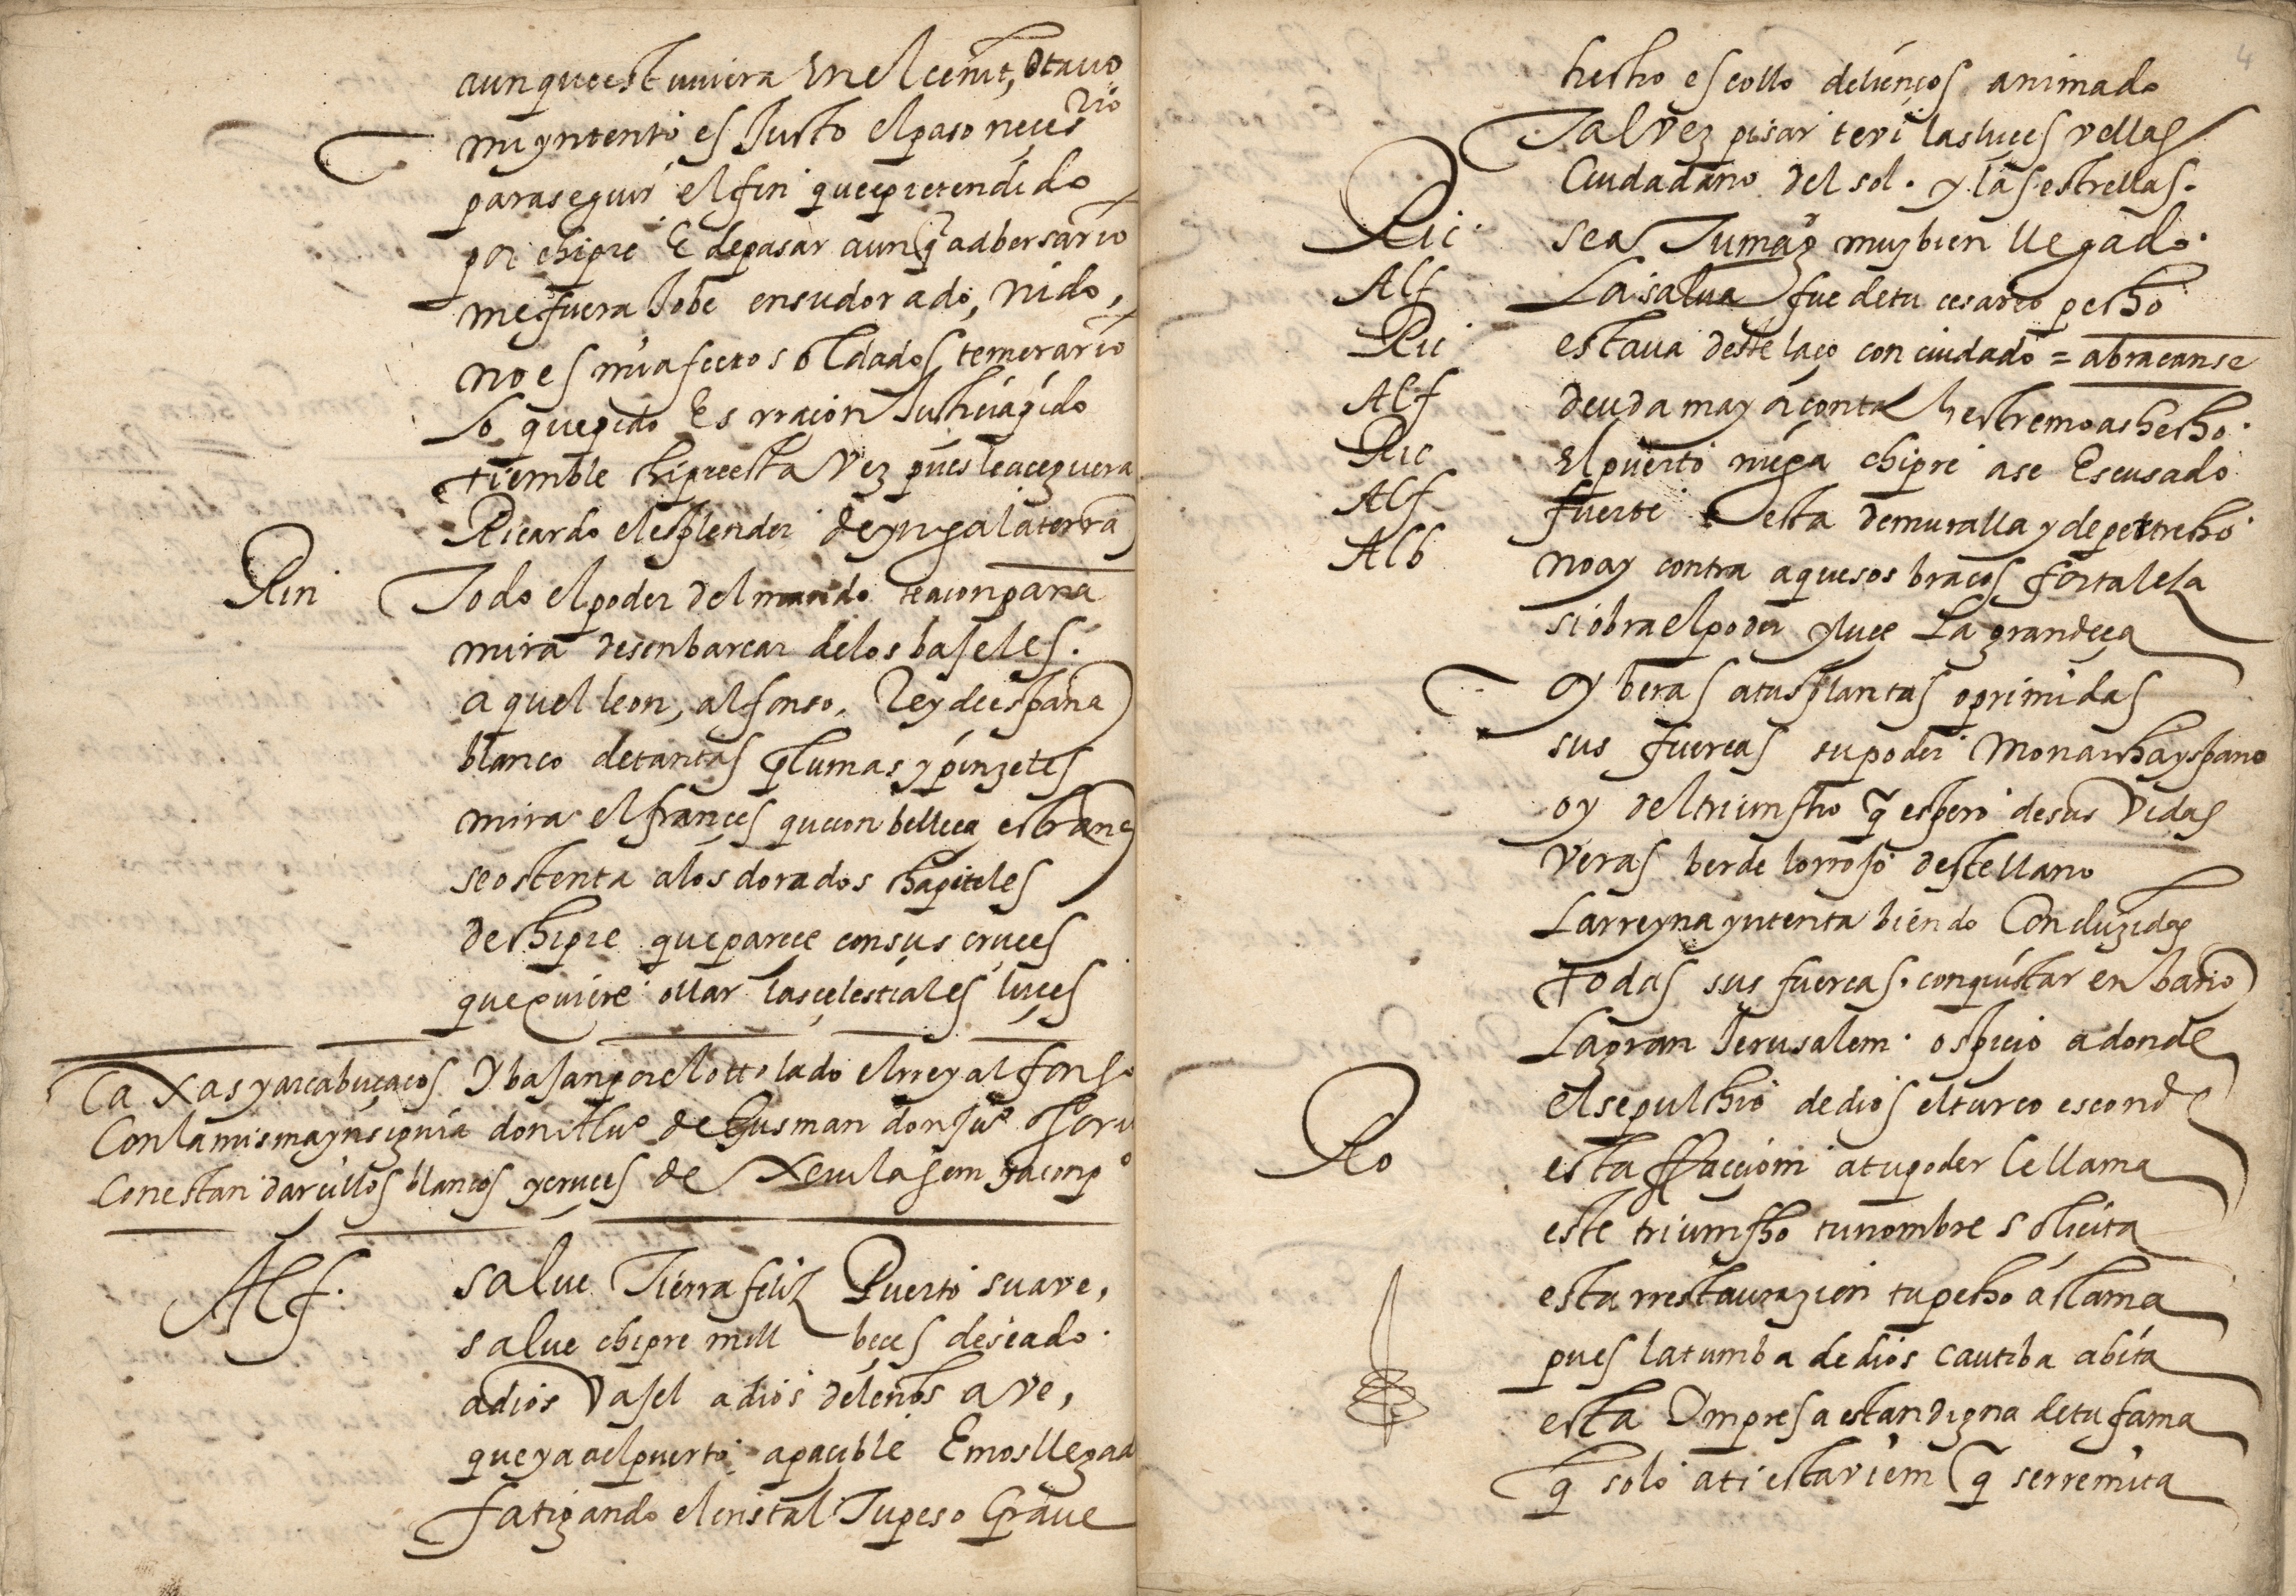 aunque estuuiera En el cenit, otauo
mi yntento es Justo el paso neces
rio
para seguir el fin que e pretendido
por chipre E de pasar aunq̃ adbersario
me fuera Jobe en su dorado, nido,
no es mi afecto soldados temerario
lo que pido Es rraçion Justiçia pido
tiemble chipre esta Vez pues le açe guera
Ricardo el esplendor de yngalaterra
Rin Todo el poder del mundo te aconpaña
mira desenbarcar de los baseles.
aquel leon, alfonso, Rey de españa
blanco de tantas plumas y pinzeles
mira el françes que con belleça estraña
se ostenta a los dorados chapiteles
de chipre que pareçe con sus cruçes
que quiere ollar las çelestiales luçes
Caxas y arcabuçaços Y bajan por el otto lado el rrey alfonso
Con la misma ynsignia don Alu° de Gusman don Ju° osori
Con estandarcillos blancos y cruçes de
Alf. salue Tierra feliz Puerto suave,
salue chipre mill beçes deseado.
adios Vasel adios de leños ave,
que ya a el puerto apaçible Emos llegad
fatigando el cristal Tu peso Graue
4
hecho escollo de lienços animado
Tal vez pisar te vi las luçes vellas
Ciudadano del sol. y las estrellas.
Ric sea Tu mag muy bien llegado.
Alf La salua fue de tu cesareo pecho
Ric estaua deste laço con cuidado = abracanse
Alf deuda mayor con tal estremo as hecho.
Ric El puerto niega chipre a se Escusado
Alf fuerte esta de muralla y de pertrecho
Alb no ay contra aquesos braços fortaleza
si obra el poder y luçe La grandeça
Oy beras a tus plantas oprimidas
sus fuercas su poder Monarcha yspano
oy del triumfho q̃ espero de sus Vidas
veras berde lo rrojo deste llano
La rreyna yntenta biendo Conduzidas
todas sus fuercas. conquistar en bano
La gran Jerusalem. ospiçio adonde
el sepulchro de dios el turco esconde
Ro esta ffaccion a tu poder le llama
este triumfho tu nombre soliçita
esta rrestaurazion tu pecho aclama
pues la tumba de dios cautiba abita
esta Ympresa es tan digna de tu fama
q̃ solo a ti esta bien q̃ se rremita